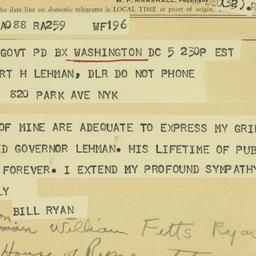 W. P. MARSHALL, PRESIDENT
the date line on domestic telegrams is LOCAL TIME at point of origin.
A088 RA259 WF196
GOVT PD BX WASHINGTON DC 5 230P EST
RT H LEHMAN, DLR DO NOT PHONE
820 PARK AVE NYK
OF MINE ARE ADEQUATE TO EXPRESS MY GRI
D GOVERNOR LEHMAN. HIS LIFETIME OF PUB
FOREVER. I EXTEND MY PROFOUND SYMPATHY
LY
BILL RYAN
man William Fitts Rya
House of Repre